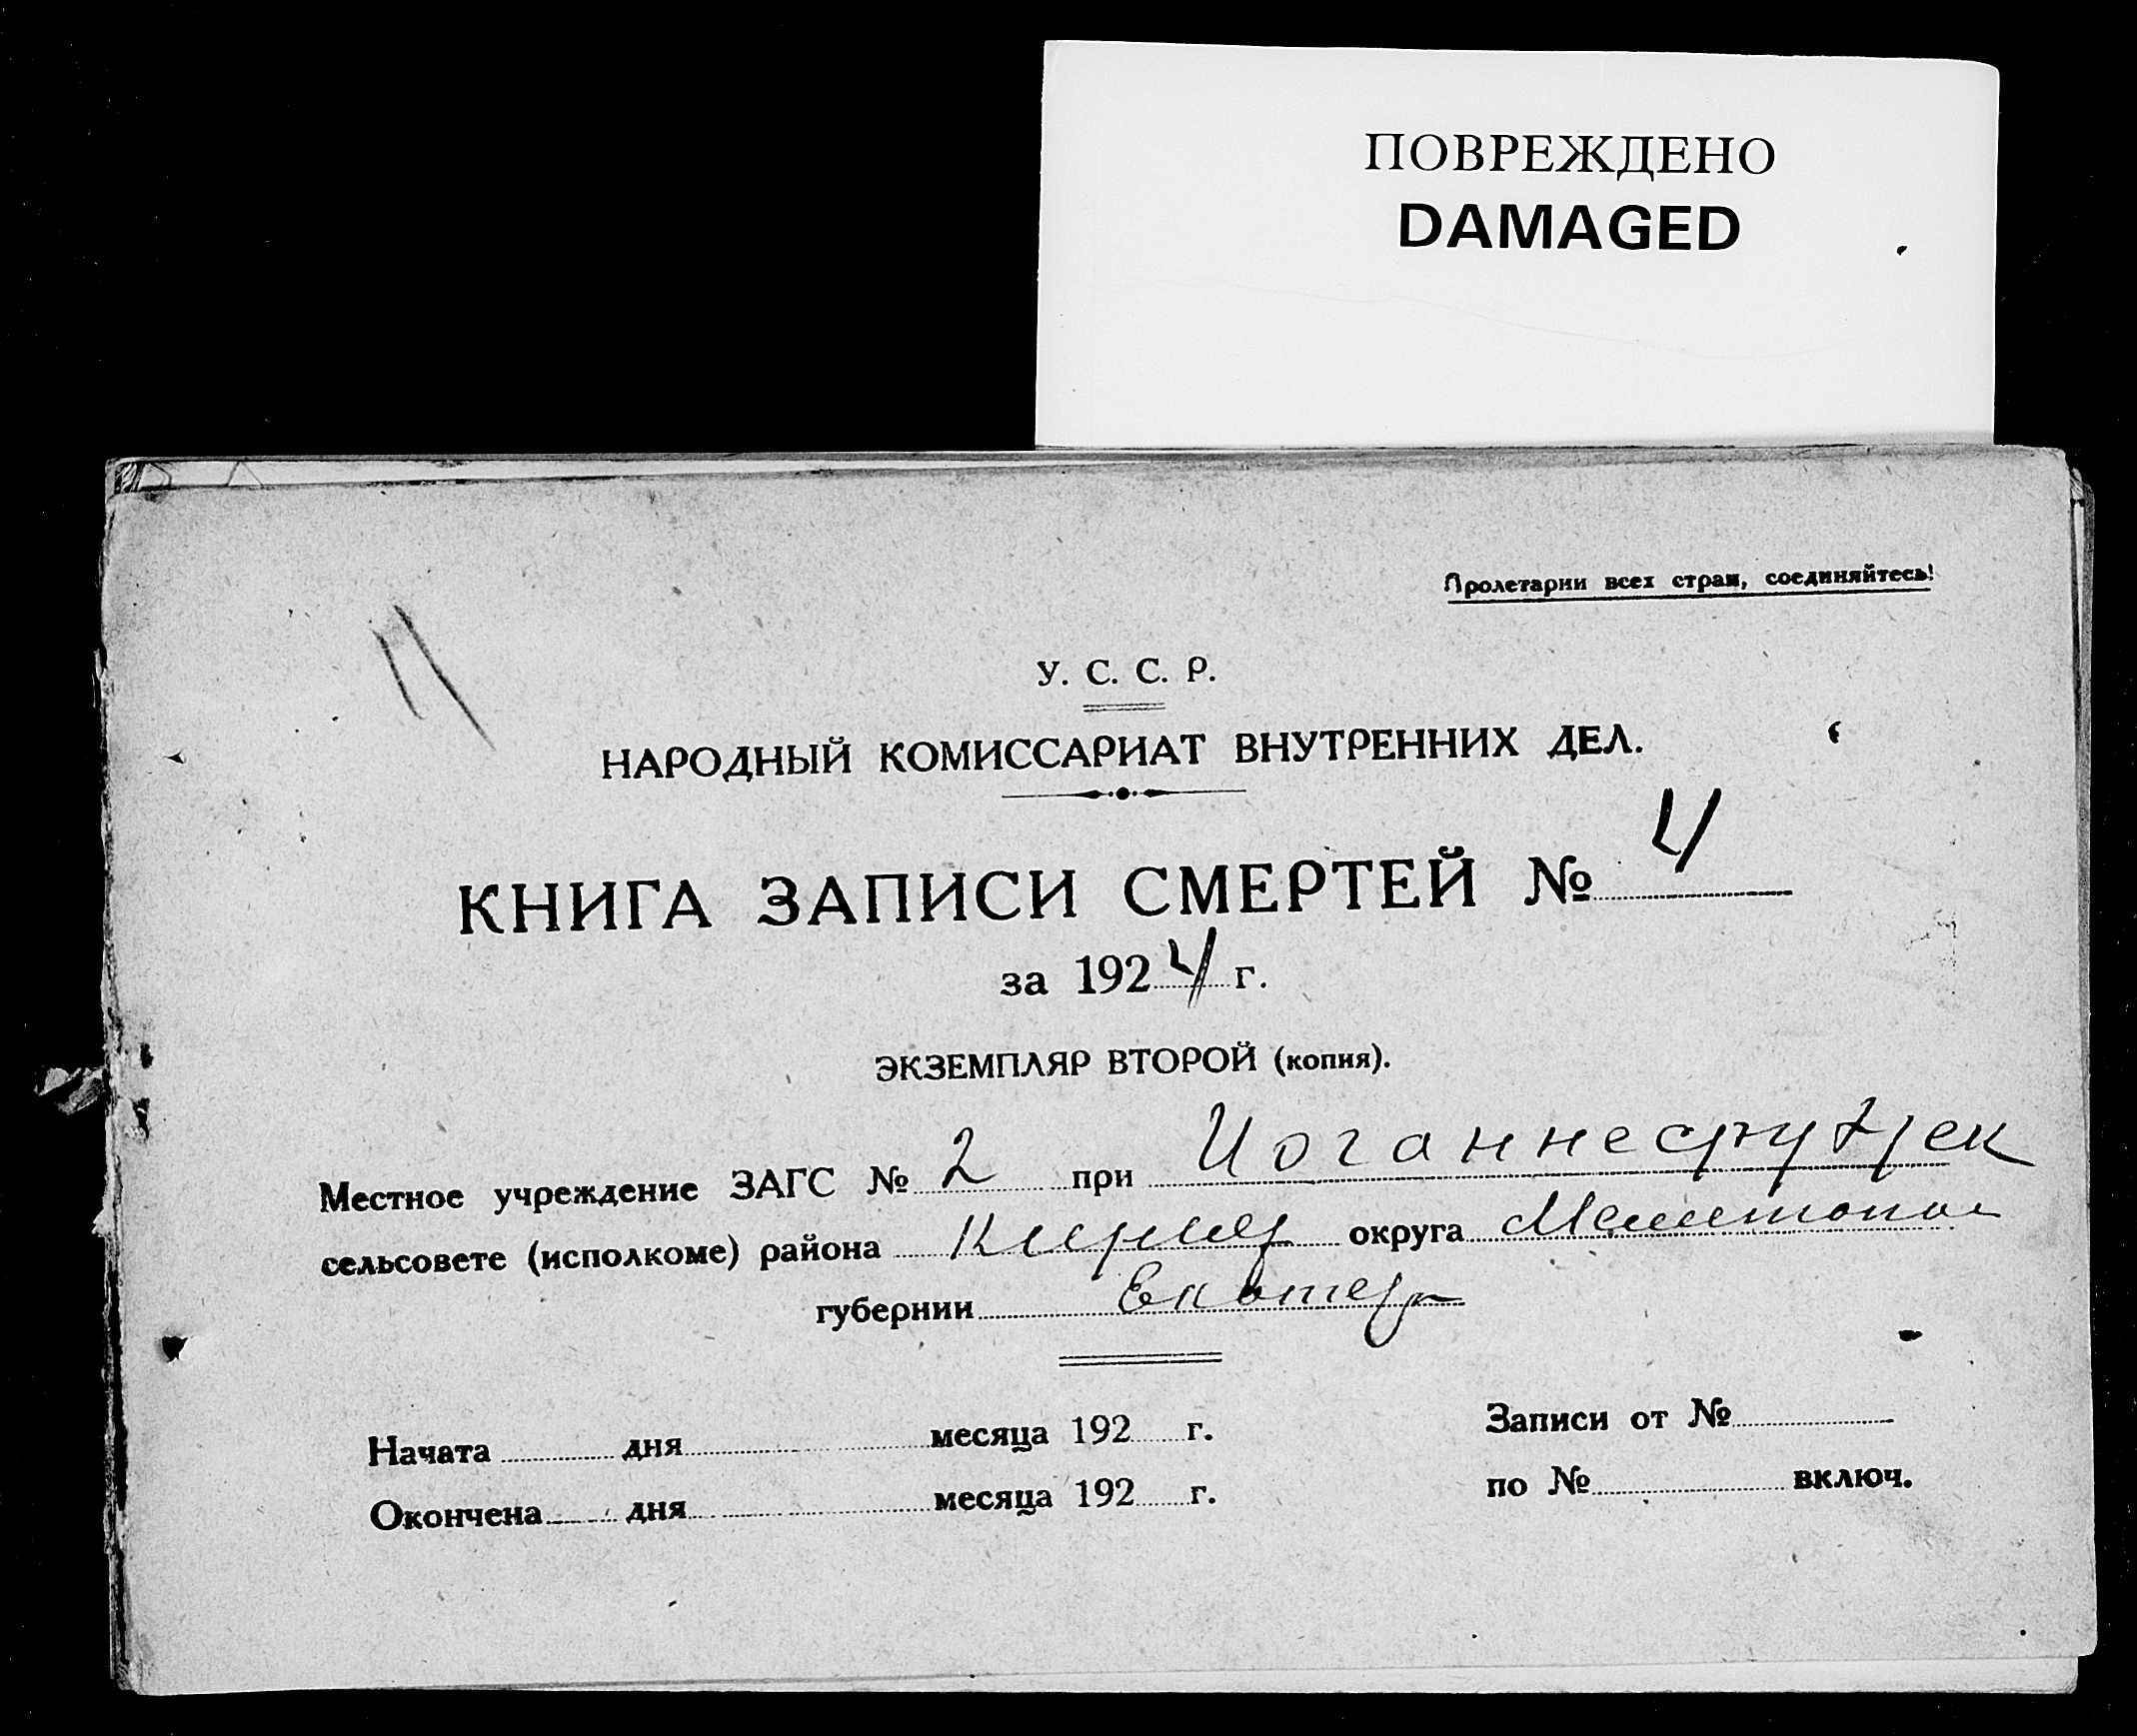 ПОВРЕЖДЕНО
DAMAGED
Пролетарии всех стран, соединяйтесь!
У. С. С. Р.
НАРОДНЫЙ КОМИССАРИАТ ВНУТРЕННИХ ДЕЛ.
КНИГА ЗАПИСИ СМЕРТЕЙ № 4
за 1924 г.
ЭКЗЕМПЛЯР ВТОРОЙ (копия).
Местное учреждение ЗАГС № 2 при
сельсовете (исполкоме) района округа Мелитопол
губернии Екатер
Начата дня месяца 192 г.
Окончена дня месяца 192 г.
Записи от №
по № включ.